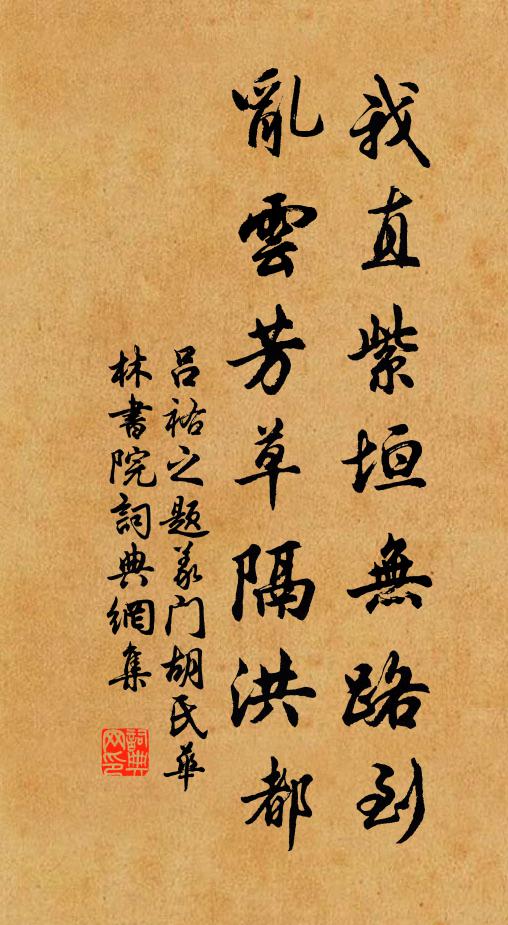 我直紫垣無路到
亂雲芳草隔洪都
呂祐之題義门胡氏華
林書院詞典網集
詞典
网印